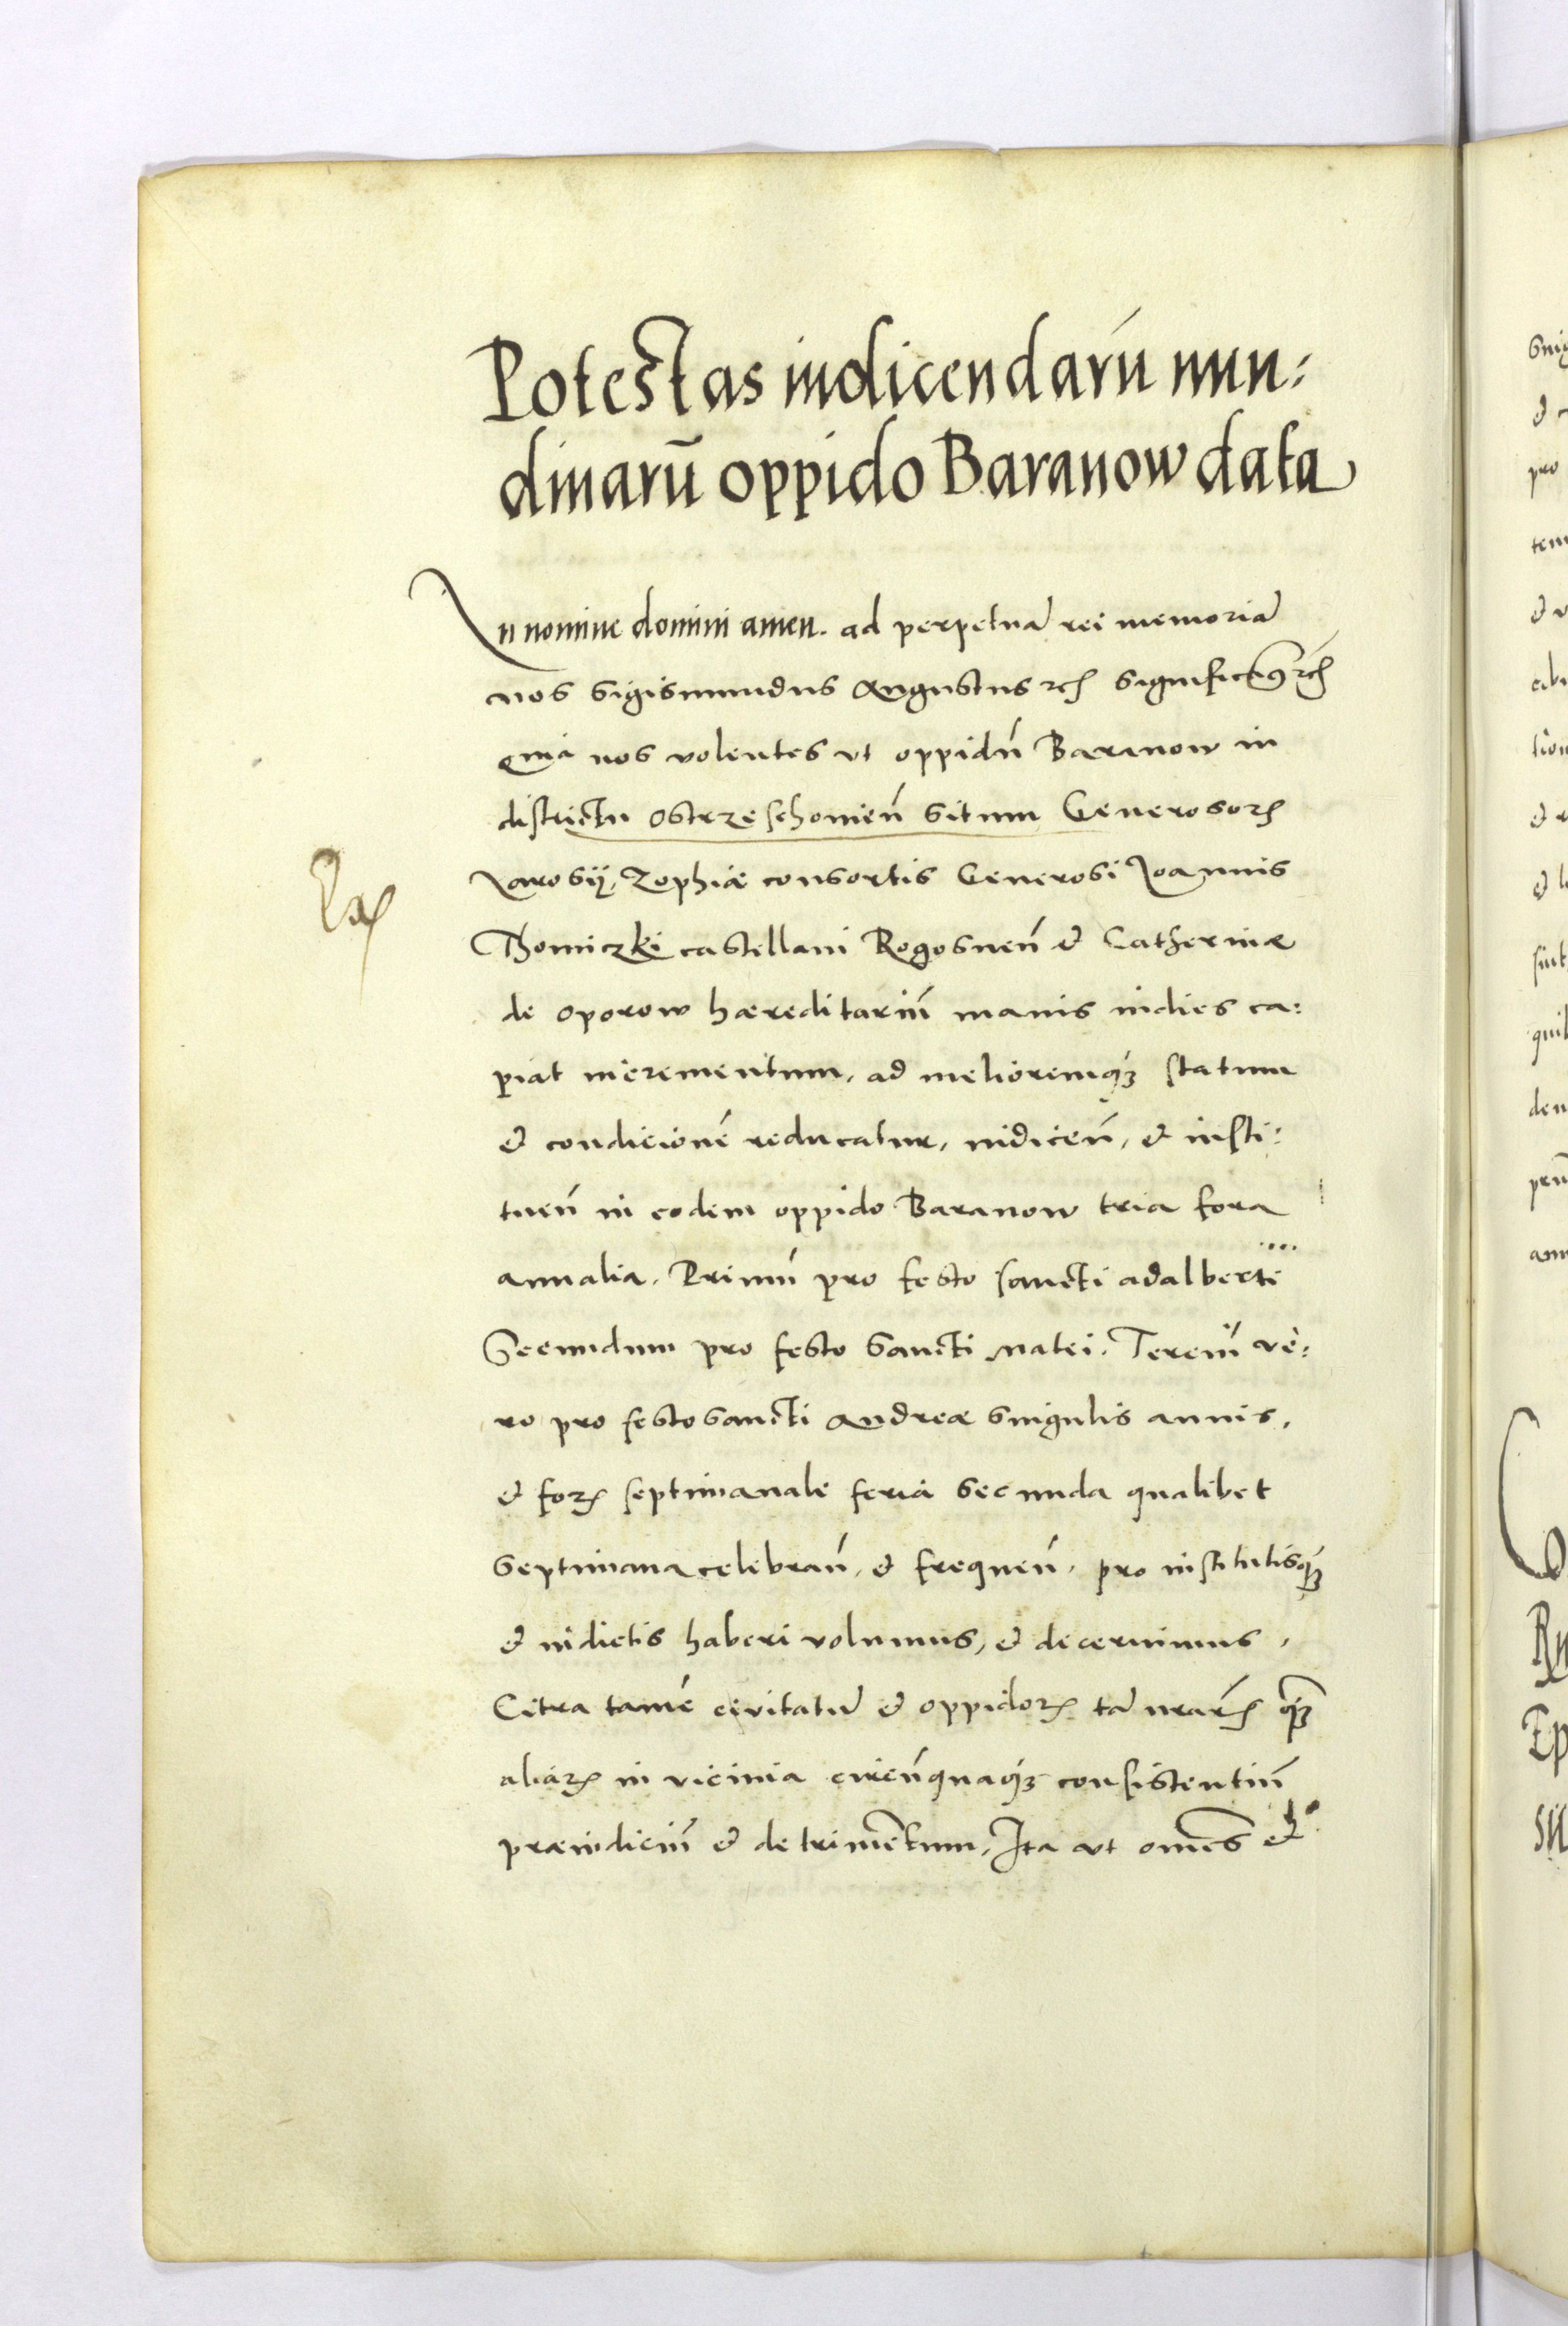 Potestas indicendarū nun:
dinarū oppido Baranow data
In nomine domini amen. ad perpetuā rei memoriā
nos Sigismundus Augustus etc̃ significamus etc̃
quia nos volentes ut oppidū Baranow in
districtu Ostrzeschoniēn situm Generosorꝝ
Jarosij, Zophiæ consortis Generosi Joannis
Thomiczki castellani Rogosnēn et Catherinæ
de Oporow hæreditariū maius indies ca:
piat incrementum, ad melioremqꝫ statum
et condicionē reducatur, indicēn, et insti:
tuēn in eodem oppido Baranow tria fora
annalia. Primū pro festo sancti adalberti
Secundum pro festo Sancti Matei. Terciū ve:
ro pro festo Sancti Andreæ singulis annis,
et forꝝ septimanale feria secunda qualibet
septimana celebrān, et frequēn, pro institutisqꝫ
et indictis haberi volumus, et decernimus,
Citra tamē civitatū et oppidorꝝ tā nrārꝝ qꝫ
aliarꝝ in vicinia circūnquaqꝫ consistentiū
præiudiciū et detrimentum, Ita ut omēs et